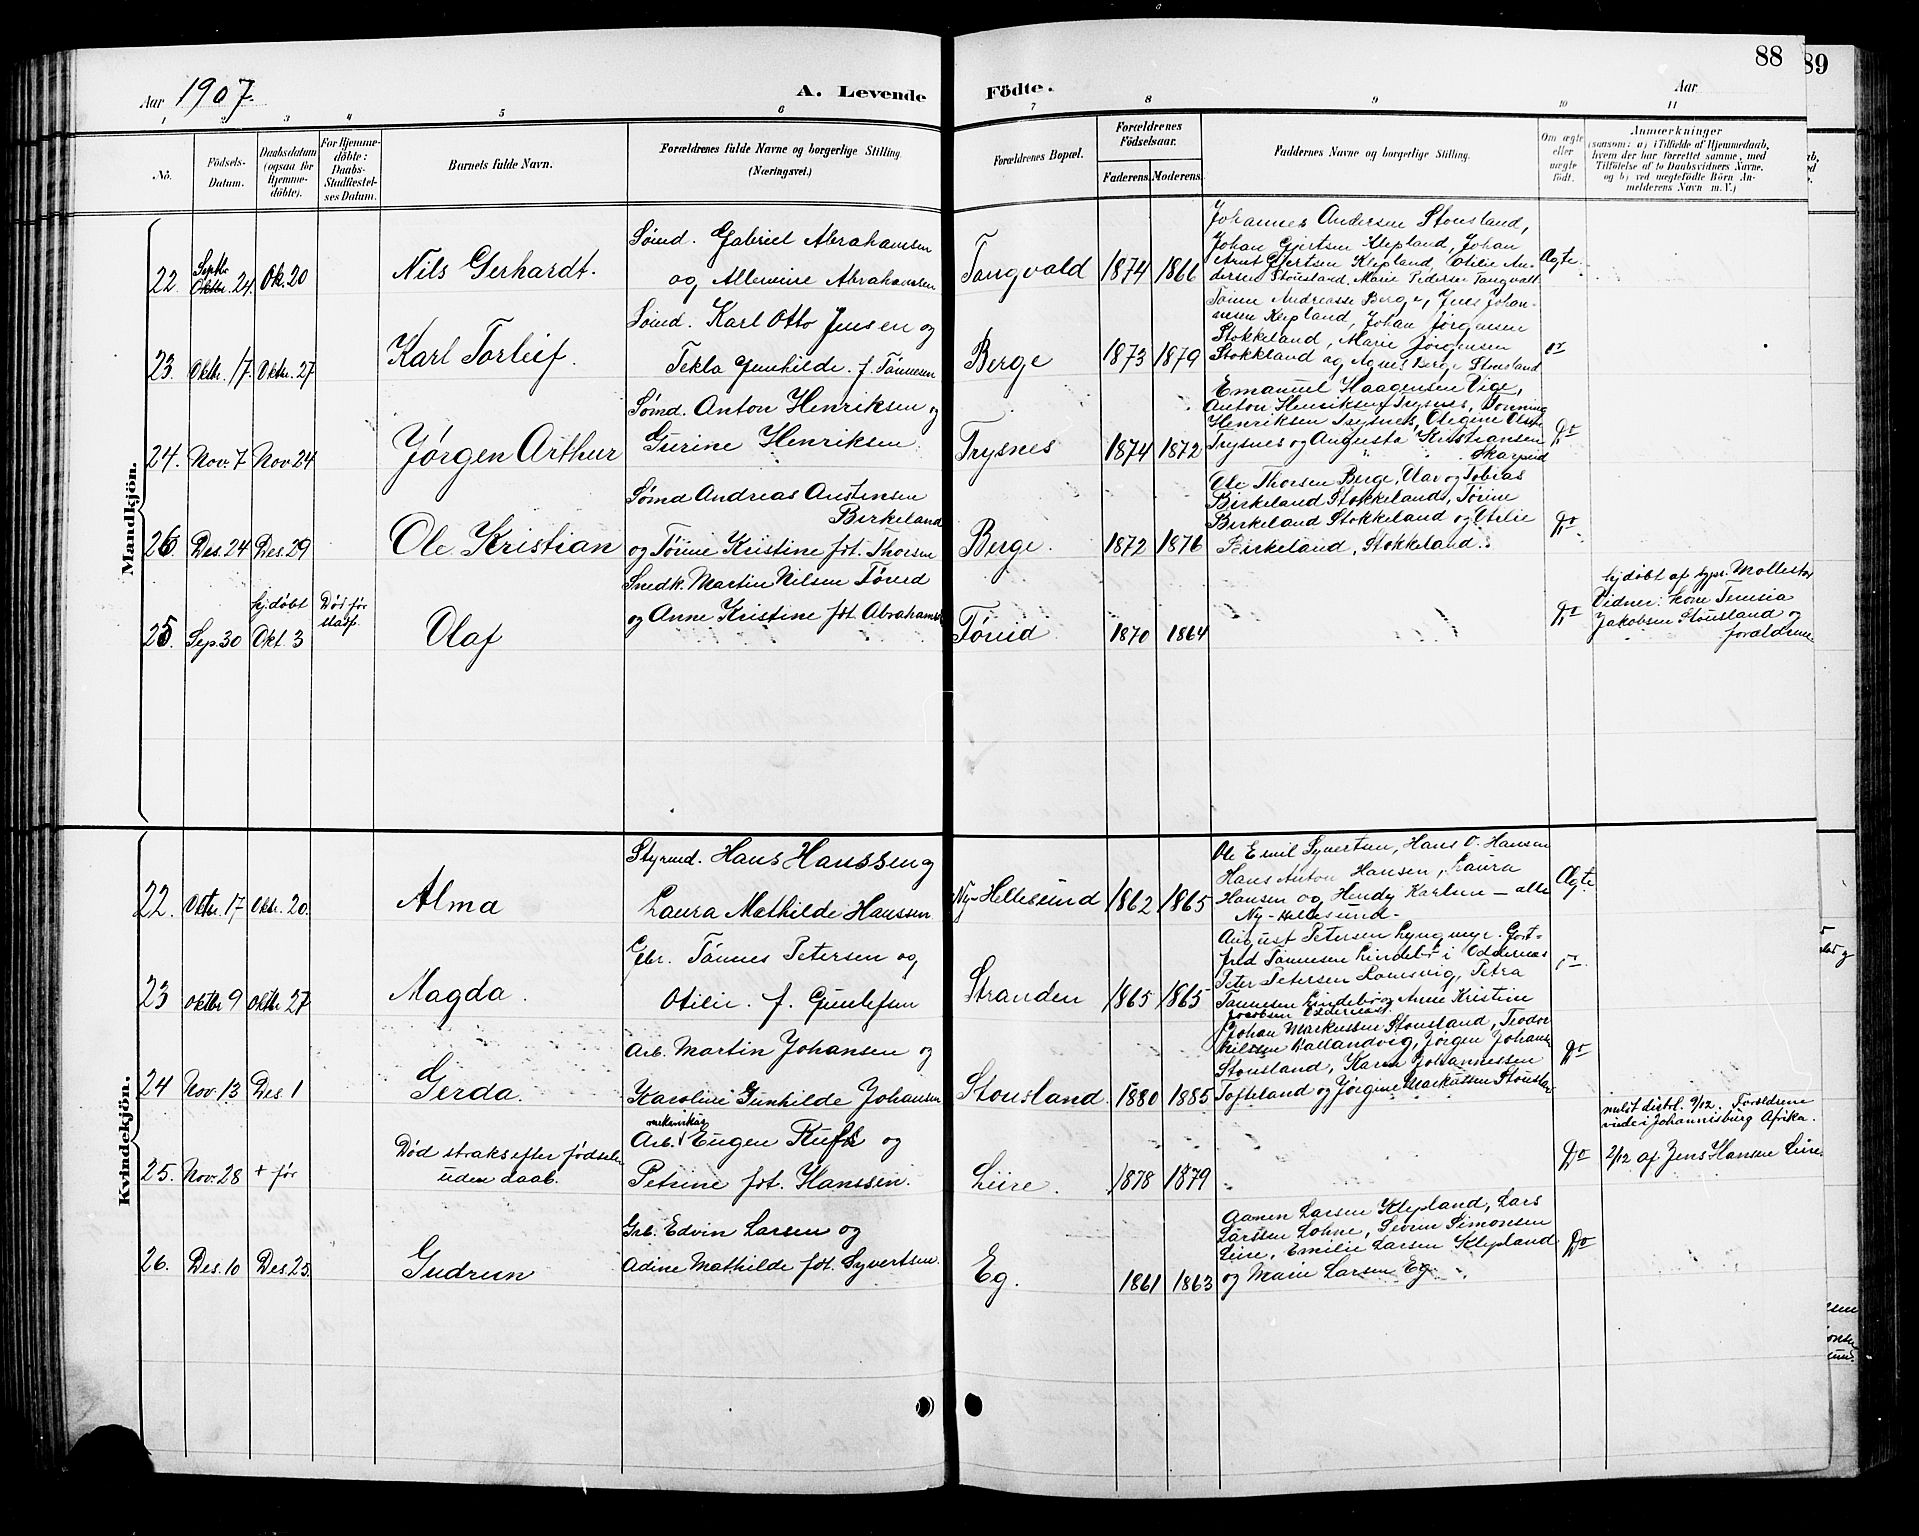 88
89
Aar 1907.
A. Levende Födte.
Aar
1 2 3 4 5 6 7 8 9 10 11
No.
Födsels-Datum.
Daabsdatum (ogsaa for Hjemme-döbte).
For Hjemme-döbte: Daabs-Stadfæstel-ses Datum.
Barnets fulde Navn.
Forældrenes fulde Navne og borgerlige Stilling (Næringsvei.)
Forældrenes Bopæl.
Forældrenes Födselsaar.
Faderens. Moderens.
Faddernes Navne og borgerlige Stilling.
Om ægte eller uægte födt.
Anmærkninger
(saasom: a) i Tilfælde af Hjemmedaab, hvem der har forrettet samme, med Tilföielse af to Daabsvidners Navne. og b) ved uegtefödte Börn An-melderens Navn m. V.)
Mandkjön.
22 Septbr. 24 Ok. 20
Nils Gerhardt.
Sømd. Gabriel Abrahamsen
og Allevine Abrahamsen
Tangvald 1874 1866
Johannes Andersen Stousland,
Johan Gjertsen Klepland, Johan
Arnt Gjertsen Klepland, Otilie An-
dersen Stousland, Marie Pedersen Tangvall
Ægte.
23. Oktr. 17 Oktr. 27
Karl Torleif.
Sømd. Karl Otto Jensen og
Tekla Gunhilde f. Tønnesen
Berge 1873 1879
Tønne Andreasse Berge, Jens Johan-
nesen Klepland, Johan Jørgensen
Stokkeland, Marie Jørgensen
Stokkeland og Agnes Berge Stousland
24. Nov. 7 Nov 24
Jørgen Arthur
Sømd. Anton Henriksen og
Gurine Henriksen.
Trysnes 1874 1872
Emanuel Haagensen Vige,
Anton Henriksen Trysnes, Tønning
Henriksen Trysnes, Olegine Olsen
Trysnes og Augusta Kristiansen
Skarpeid
Do
26. Des. 24 Des. 29
Ole Kristian
Sømd Andreas Austensen
Birkeland
og Tørine Kristine føt. Thorsen
Berge. 1872 1876
Ole Thorsen Berge, Olav og Tobias
Birkeland Stokkeland, Tørine
Birkeland Stokkeland og Otelie
Birkeland, Stokkeland.
Do
25. Sep. 30 hjdøbt Okt. 3
Død før stadf.
Olaf
Snedk. Martin Nilsen Føreid
og Anne Kristine føt Abrahams.
Føreid 1870 1864
Do
hjdøbt af spr. Mollestad
Vidner: kone Teresia
Jakobsen Stousland og
forældrene
Kvindekjön.
22. Oktr. 17 Oktr. 20.
Alma
Styrmd. Hans Hanssen og
Laura Mathilde Hanssen
Ny-Hellesund 1862 1865
Ole Emil Syvertsen, Hans O. Hansen
Hans Anton Hansen, Laura
Hansen og Hendy Karlsen – alle
Ny-Hellesund.
Ægte.
23 Oktbr 9 Oktbr 27
Magda.
Gbr. Tønnes Petersen og
Otilie f. Gunlefsen
Stranden 1865 1865
August Petersen Lyngmyr. Gott-
fred Tønnesen Lindebø i Oddernes
Peter Petersen Romsvig, Petra
Tønnesen Lindebø og Anne Kristine
Jacobsen
24 Nov. 13 Des. 1
Gerda.
Arb. Martin Johansen og
Karoline Gunhilde Johansen
Stousland. 1880 1885
Johan Markussen Stousland, Teodor
Nilssen Kallandvig, Jørgen Johans
Stousland, Karen Johannessen
Tofteland og Jørgine Markussen Stousla
Do
25. Nov. 28 + før
Død straks efter fødselen
uden daab.
Arb. Eugen Rufk og
Petrine føt. Hanssen.
Leire. 1878 1879
Do
meldt distrl. 9/12. Forældrene
viede i Johannisburg Afrika.
2/12 af Jens Hansen Leire
26. Des. 10 Des. 25.
Gudrun
Grb. Edvin Larsen og
Adine Mathilde føt. Syvertsen.
Eg. 1861 1863
Aanen Larsen Klepland, Lars
Larssen Lohne, Severin Simonsen
Leire, Emilie Larsen Klepland
og Marie Larsen Eg.
Do